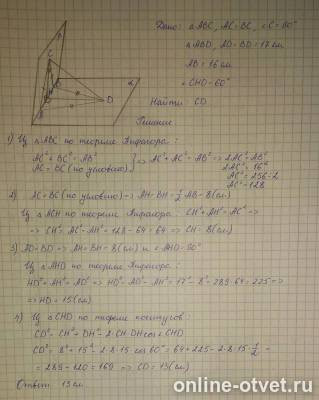 Дано: △ABC, AC=BC, ∠C=90°
△ABD, AD=BD=17см
AB=16см
∠CHD=60°
Найти: CD
Решение
1) Из △ABC по теореме Пифагора:
AC²+BC²=AB²
AC=BC (по условию) } => AC²+AC²=AB² => 2AC²=AB²
2AC²=16²
AC²=256:2
AC²=128
2) AC=BC (по условию) => AH=BH=½AB=8(см)
Из △ACH по теореме Пифагора: CH²+AH²=AC² =>
=> CH²=AC²-AH²=128-64=64 => CH=8(см)
3) AD=BD => AH=BH=8(см) и ∠AHD=90°
Из △AHD по теореме Пифагора:
HD²+AH²=AD² => HD²=AD²-AH²=17²-8²=289-64=225 =>
=> HD=15(см)
4) Из △CHD по теореме косинусов:
CD²=CH²+DH²-2·CH·DH cos∠CHD
CD²=8²+15²-2·8·15 cos60°=64+225-2·8·15·½=
=289-120=169 => CD=13(см)
Ответ: 13см
online-otvet.ru